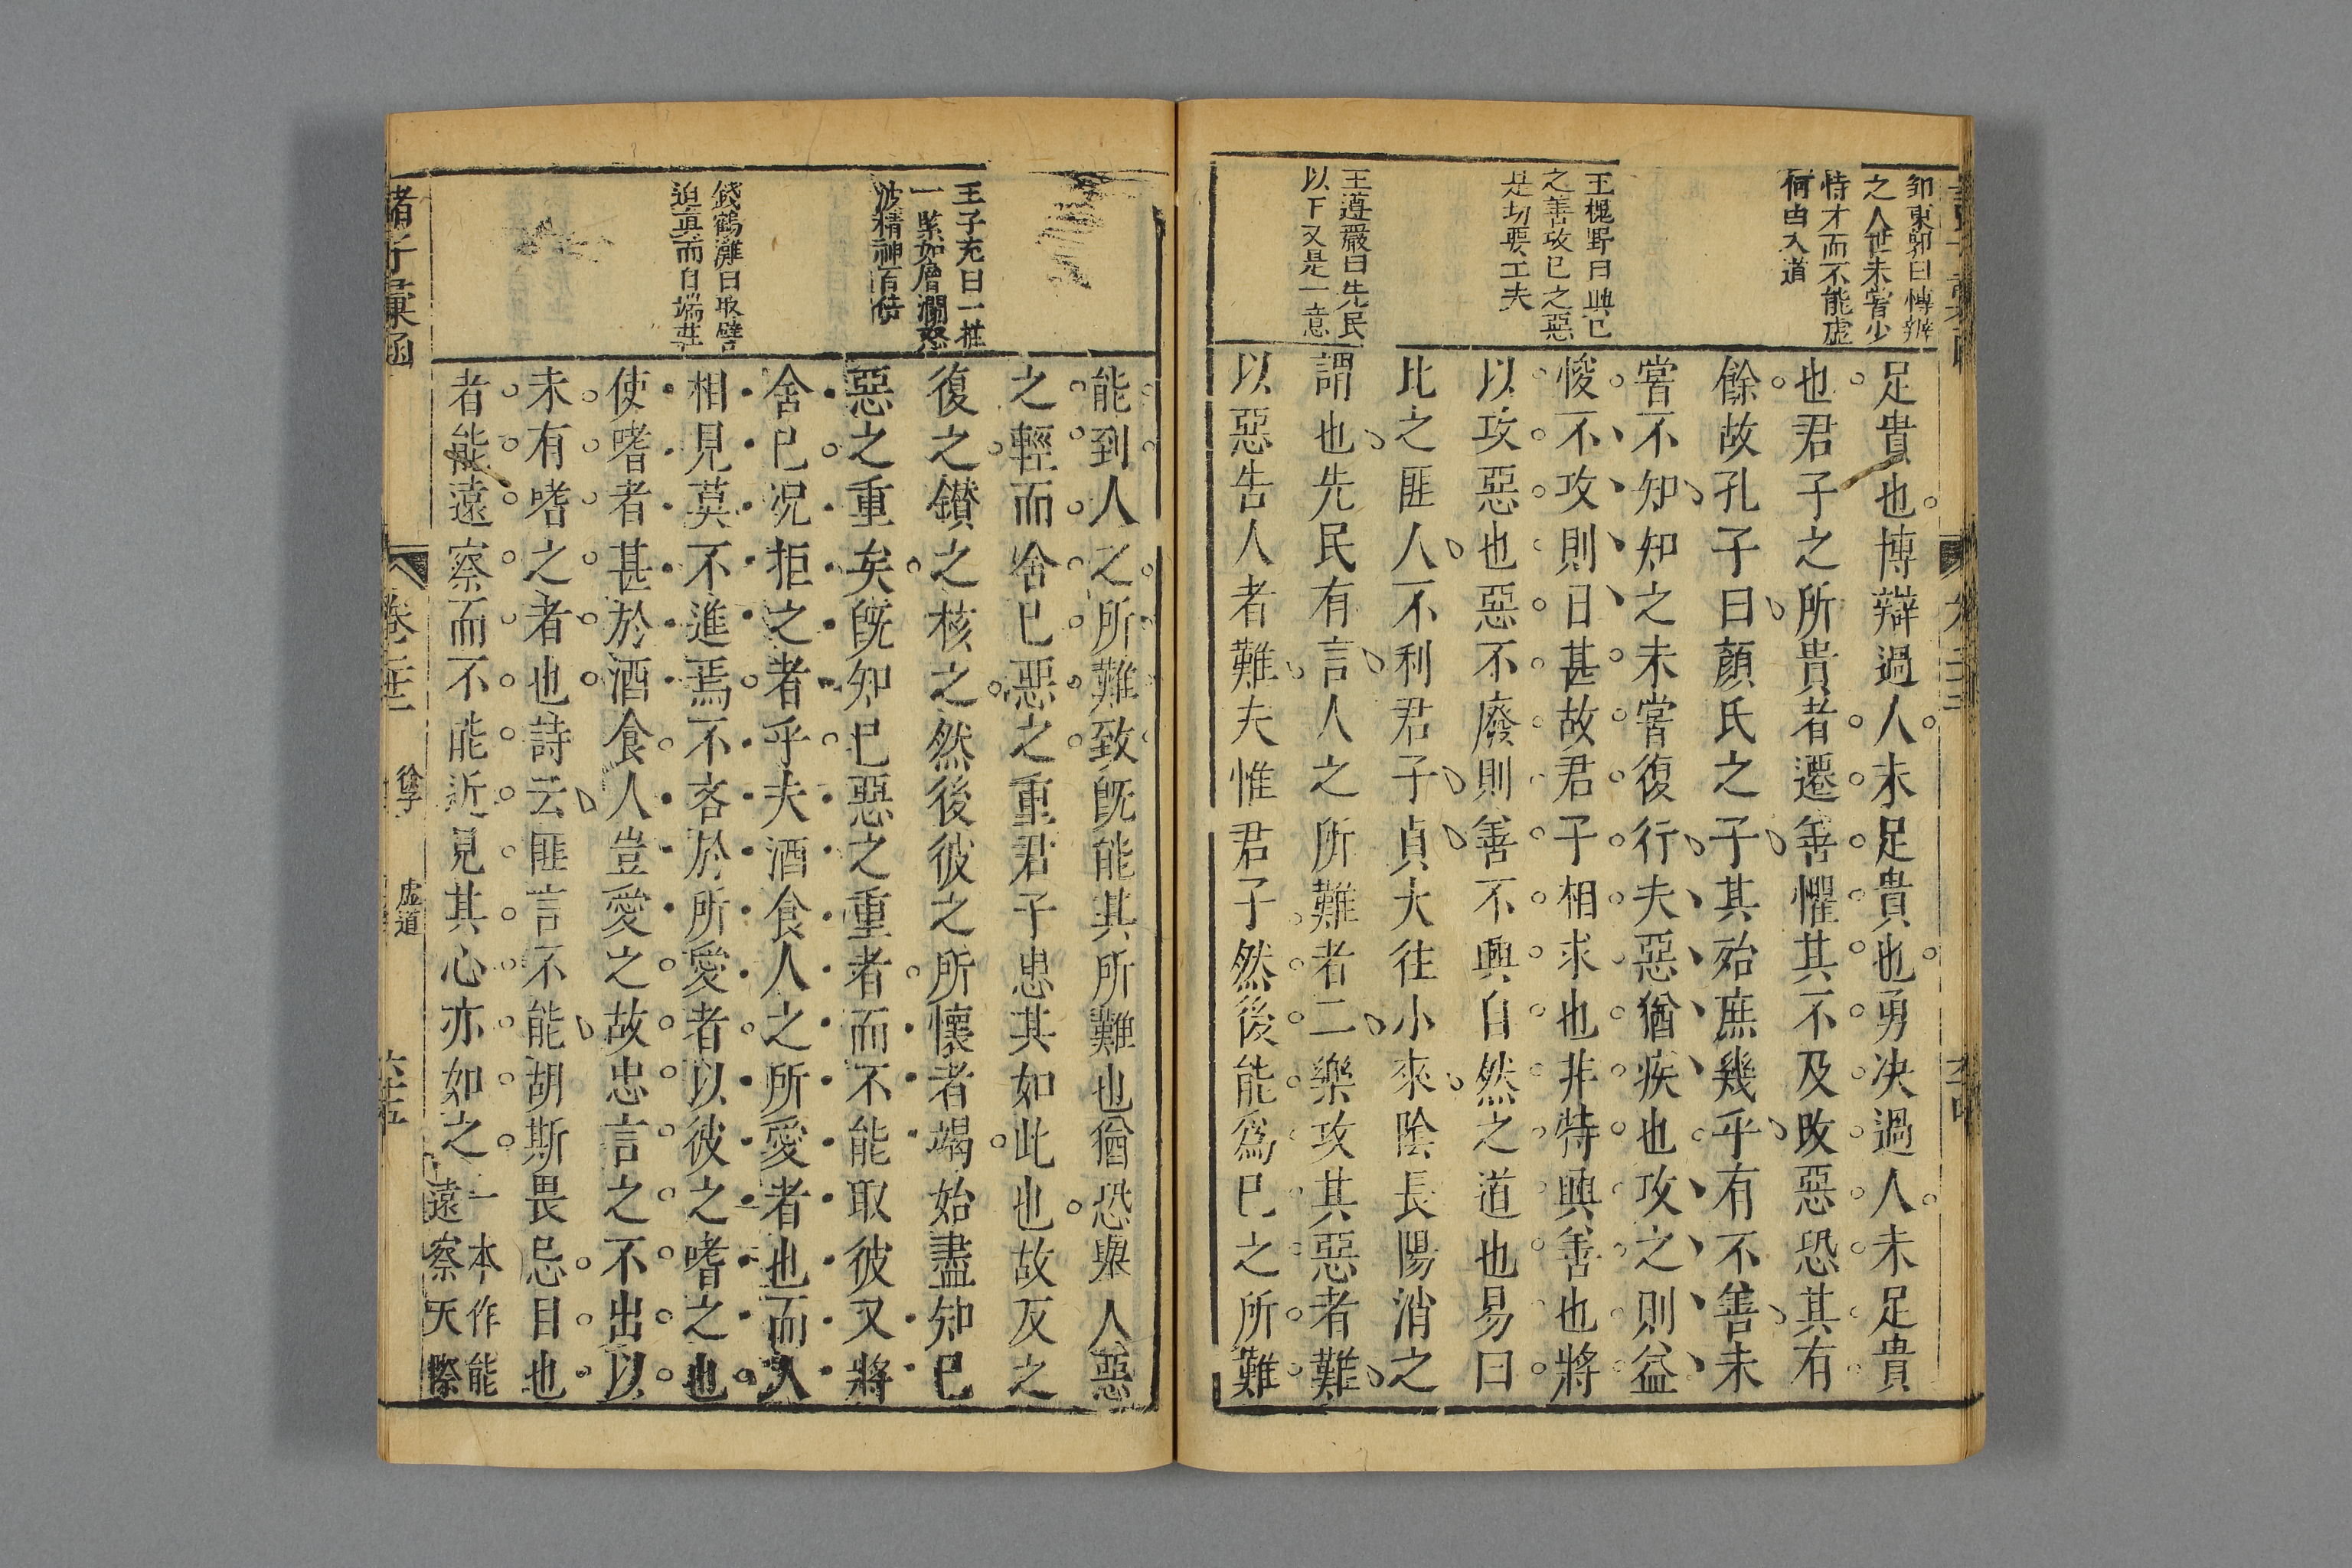 郭東郭曰博辯
之人世未嘗少
恃才而不能虛
何由入道
王槐野曰興已
之善攻已之惡
是切要工夫
王遵嚴曰先民
以下又是一意
足貴也博辯過人未足貴也勇決過人未足貴
也君子之所貴者遷善懼其不及改惡恐其有
餘故孔子曰顏氏之子其殆庶幾乎有不善未
嘗不知知之未嘗復行夫惡猶疾也攻之則益
悛不攻則日甚故君子相求也非特興善也將
以攻惡也惡不廢則善不興自然之道也易曰
比之匪人不利君子貞大往小來陰長陽消之
謂也先民有言人之所難者二樂攻其惡者難
以惡告人者難夫惟君子然後能爲已之所難
王子充曰一推
一緊如層瀾怒
波精神百倍
錢鶴灘曰取譬
迫真而自端莊
能到人之所難致既能其所難也猶恐舉人惡
之輕而舍已惡之重君子患其如此也故反之
復之鑚之核之然後彼之所懷者竭始盡知已
惡之重矣既知已惡之重者而不能取彼又將
舍已况拒之者乎夫酒食人之所愛者也而人
相見莫不進焉不吝於所愛者以彼之嗜之也
使嗜者甚於酒食人豈愛之故忠言之不出以
未有嗜之者也詩云匪言不能胡斯畏忌目也
者能遠察而不能近見其心亦如之一本作能
遠察天際
諸子彙函
卷之廿一
徐子
虛道
六十五